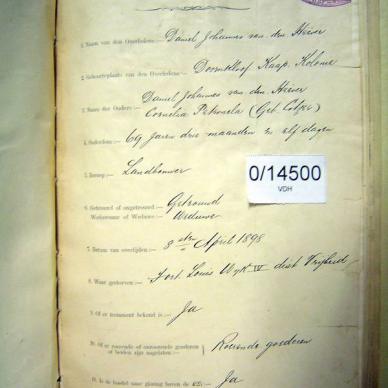 1. Naam van den Overledene:— Daniel Johannes van den Heever
2. Geboorteplaats van den Overledene:— Doornkloof Kaap Kolonie
3. Naam der Ouders:— Daniel Johannes van den Heever
Cornelia Petronela (Geb.
4. Ouderdom:— 69 Jaren drie maanden en elf dagen
5. Beroep:— Landbouwer
0/14500
VDH
6. Getrouwd of ongetrouwd:— Getrouwd
Weduwnaar of Weduwe:— Weduwe
7. Datum van overlijden:— 8 sten April 1898
8. Waar gestorven:— Wyk IV dist Vryheid
9. Of er testament bekend is:— Ja
10. Of er roerende of onroerende goederen Roerende goederen
of beiden zijn nagelaten:—
11. Is de boedel naar gissing boven de Ja